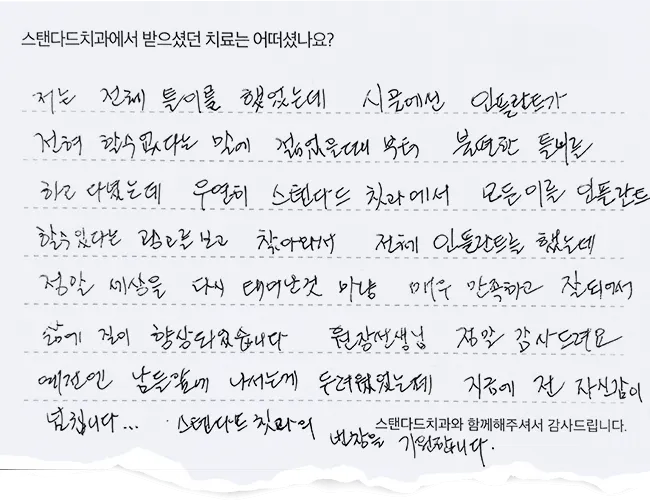 스탠다드치과에서 받으셨던 치료는 어떠셨나요?
저는 전체 틀이를 했었는데 시골에선 인플란트가
전혀 할수없다는 말에 젊었을때 부터 불편한 틀니를
하고 다녔는데 우연히 스텐다드 칫과에서 모든이를 인플란트
할수있다는 광고를보고 찾아와서 전체 인플란트를 했는데
정말 세상을 다시 태어난것 마냥 매우 만족하고 잘되어서
삶에 질이 향상되었습니다 원장선생님 정말 감사드려요
예전엔 남들앞에 나서는게 두려웠었는데 지금에 전 자신감이
넘칩니다... 스텐다드칫과의 번창을 기원합니다.
스탠다드치과와 함께해주셔서 감사드립니다.